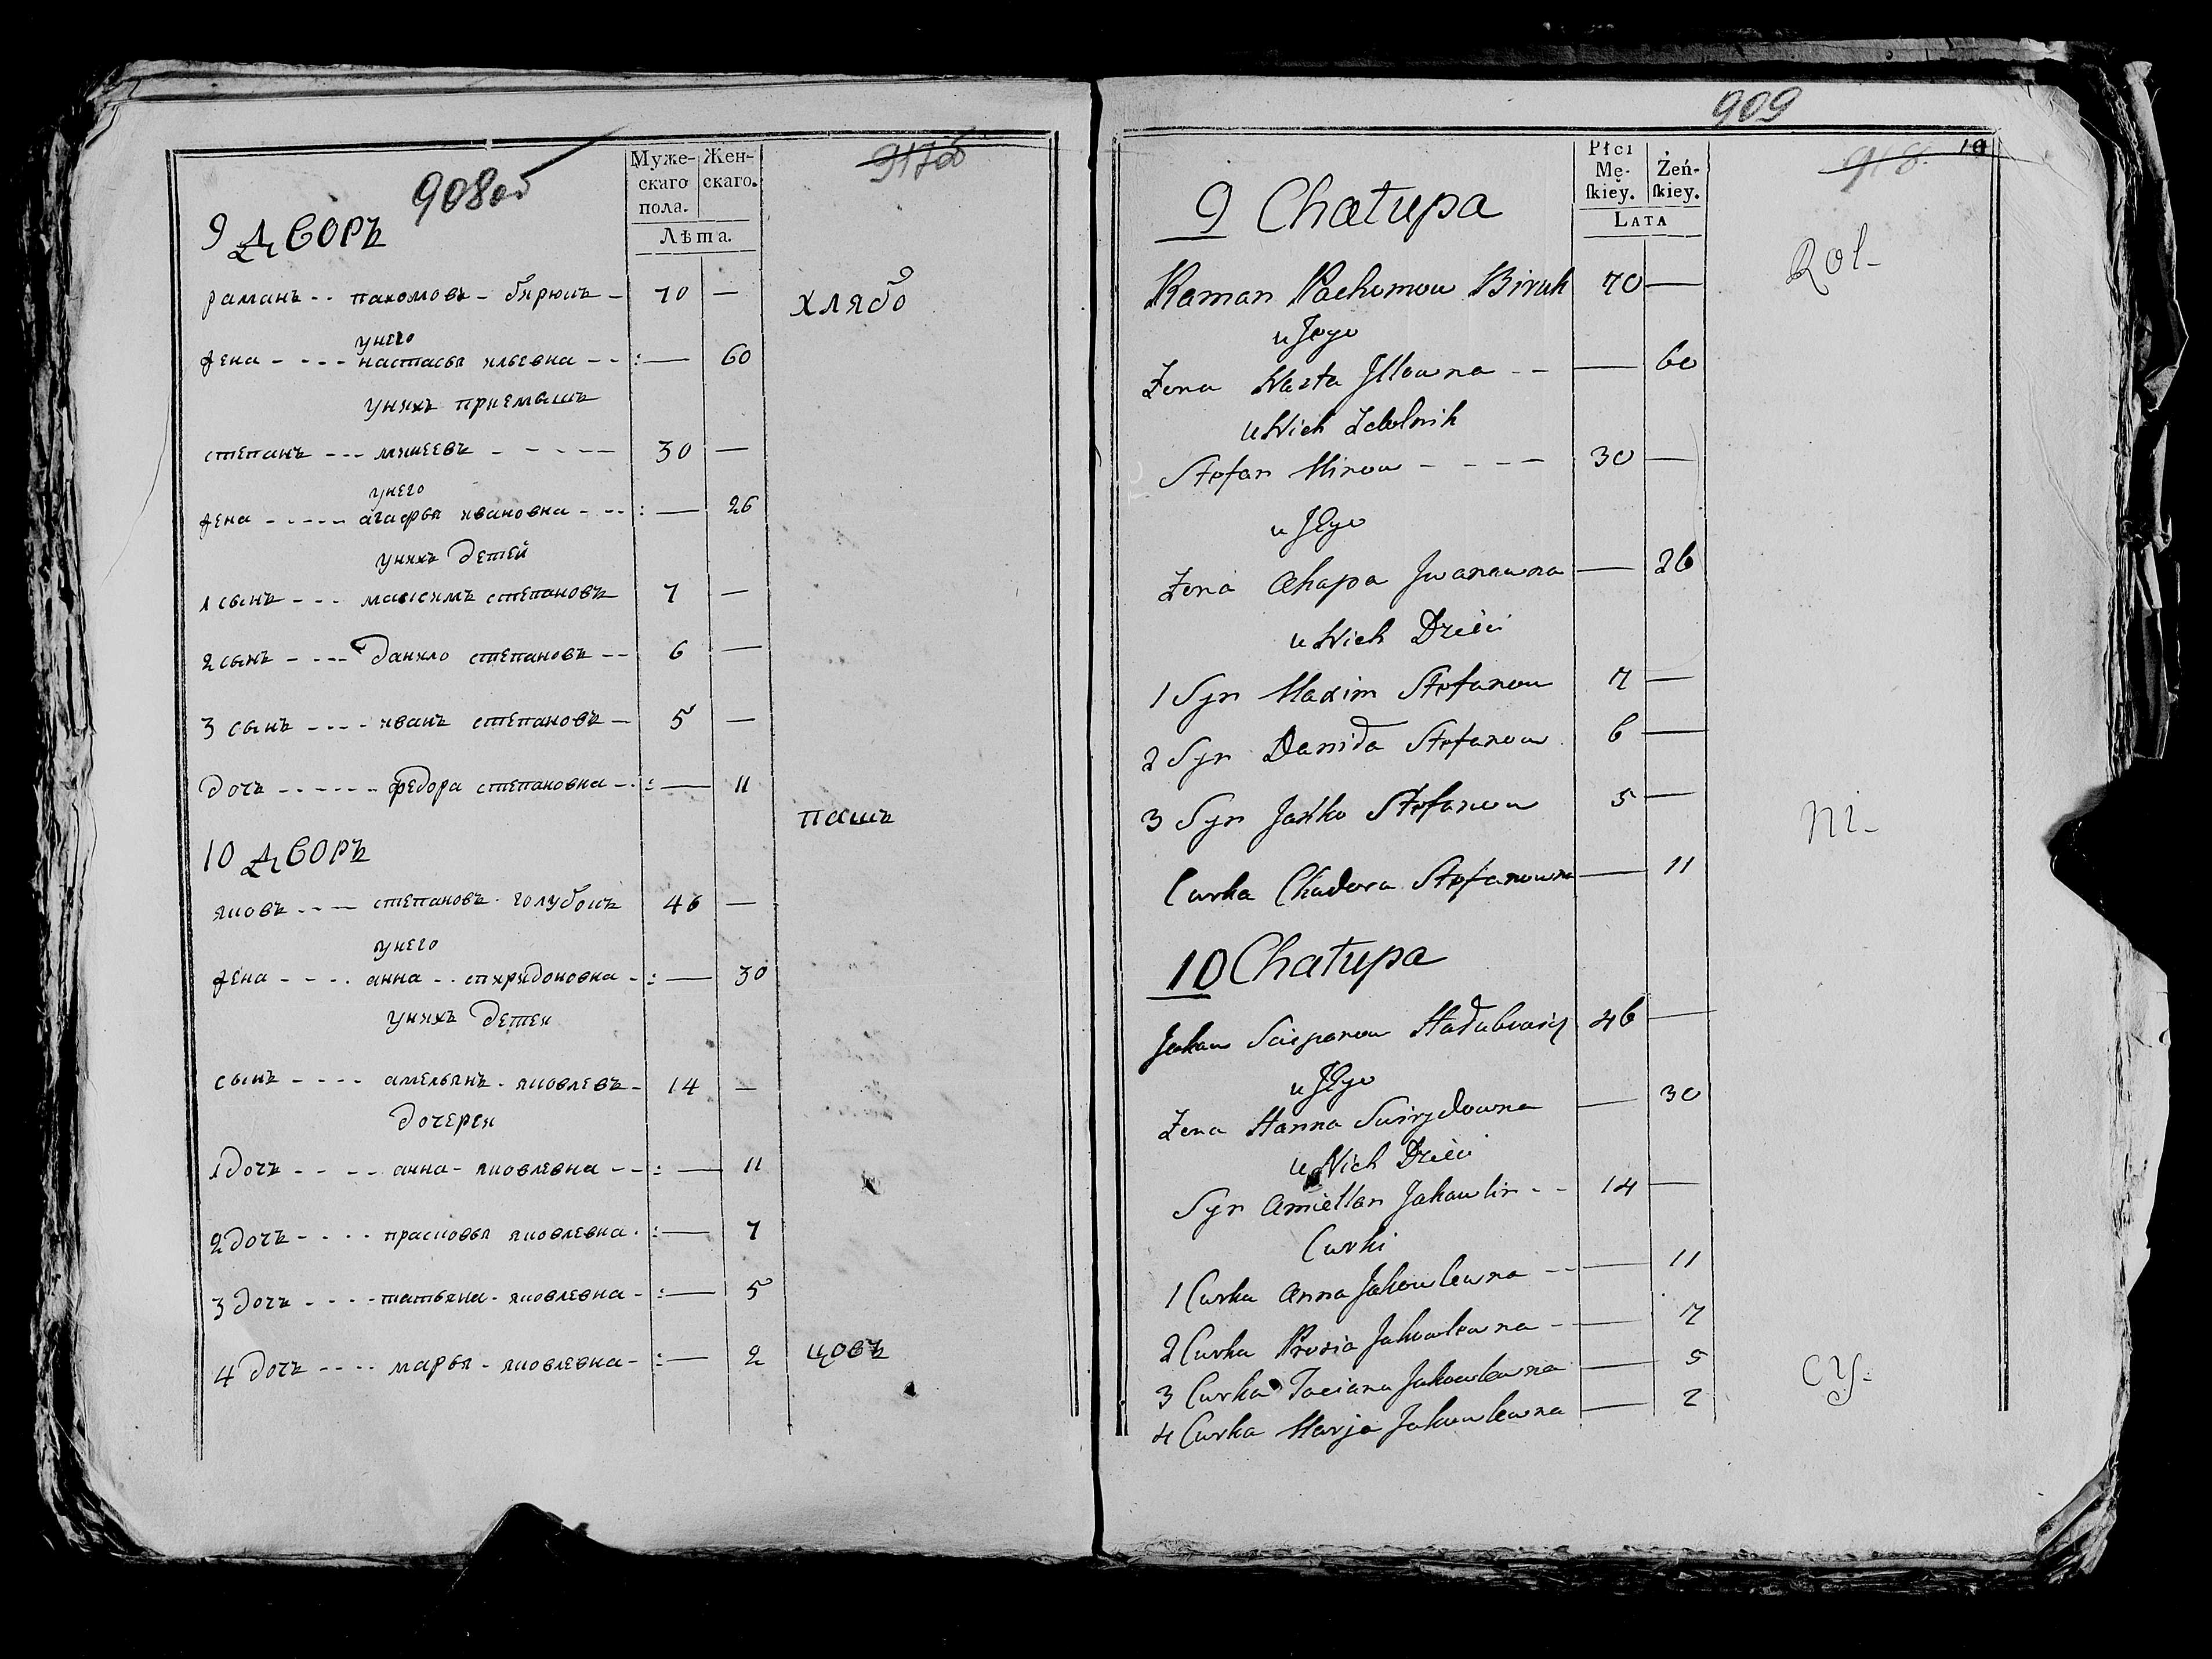 908об
Муже-
скаго
пола.
Жен-
скаго.
Лѣта.
917об
9 дворъ
раманъ -- пахомовъ - бирюкъ - 70 — хлябо
унего
жена - - - - настасья ильевна - - : — 60
унихъ приемышъ
степанъ --- минеевъ - - - - - 30 —
унего
жена - - - - - агафья ивановна - -- : — 26
унихъ детей
1 сынъ - - - максимъ степановъ 7 —
2 сынъ - - - - данило степановъ -- 6 —
3 сынъ - - - - иванъ степановъ - 5 —
дочъ - - - - - - федора степановна - : — 11
пашъ
10 дворъ
яковъ - - - степановъ - голубокъ 46 —
унего
жена - - - - анна -- спиридоновна - : — 30
унихъ детеи
сынъ - - - - амельянъ - яковлевъ - 14 —
дочереи
1 дочъ - - - - анна - яковлевна - - : — 11
2 дочъ - - - - прасковья яковлевна - : — 7
3 дочъ - - - - татьяна - яковлевна - : — 5
4 дочъ - - - - марья - яковлевна - : — 2 цовъ
909
Płci
Mę-
skiey.
Żeń-
skiey.
LATA
918
10
9 Chałupa
Rol-
Raman Pachomow Biruk 70 —
u Jego
Żona Nasta Jllowna - - — 60
u Nich Zdolnik
Stefan Minow - - - - 30 —
u Jego
Żona Ahapa Jwanowna — 26
u Nich Dzieci
1 Syn Maxim Stefanow 7 —
2 Syn Daniła Stefanow 6 —
3 Syn Jaśko Stefanow 5 —
ni-
Curka Chadora Stefanowna — 11
10 Chałupa
Jakow Sciepanow Hałubowicz 46 —
u Jego
Żona Hanna Swirydowna — 30
u Nich Dzieci
Syn Amiellan Jakowlin - - 14 —
Curki
1 Curka Anna Jakowlewna - - — 11
2 Curka Prosia Jakowlewna - — 7
3 Curka Taciana Jakowlewna — 5
cy.
4 Curka Marja Jakowlewna — 2